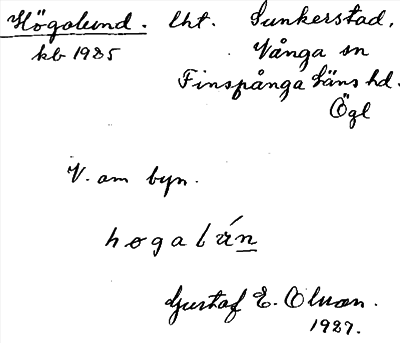 Högalund. lht. Sunkerstad,
kb 1925 Vånga sn
Finspånga läns hd.
Ögl
V. om byn.
hogalún
Gustaf E. Olsson.
1927.